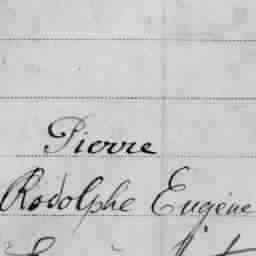 Pierre
Rodolphe Eugène